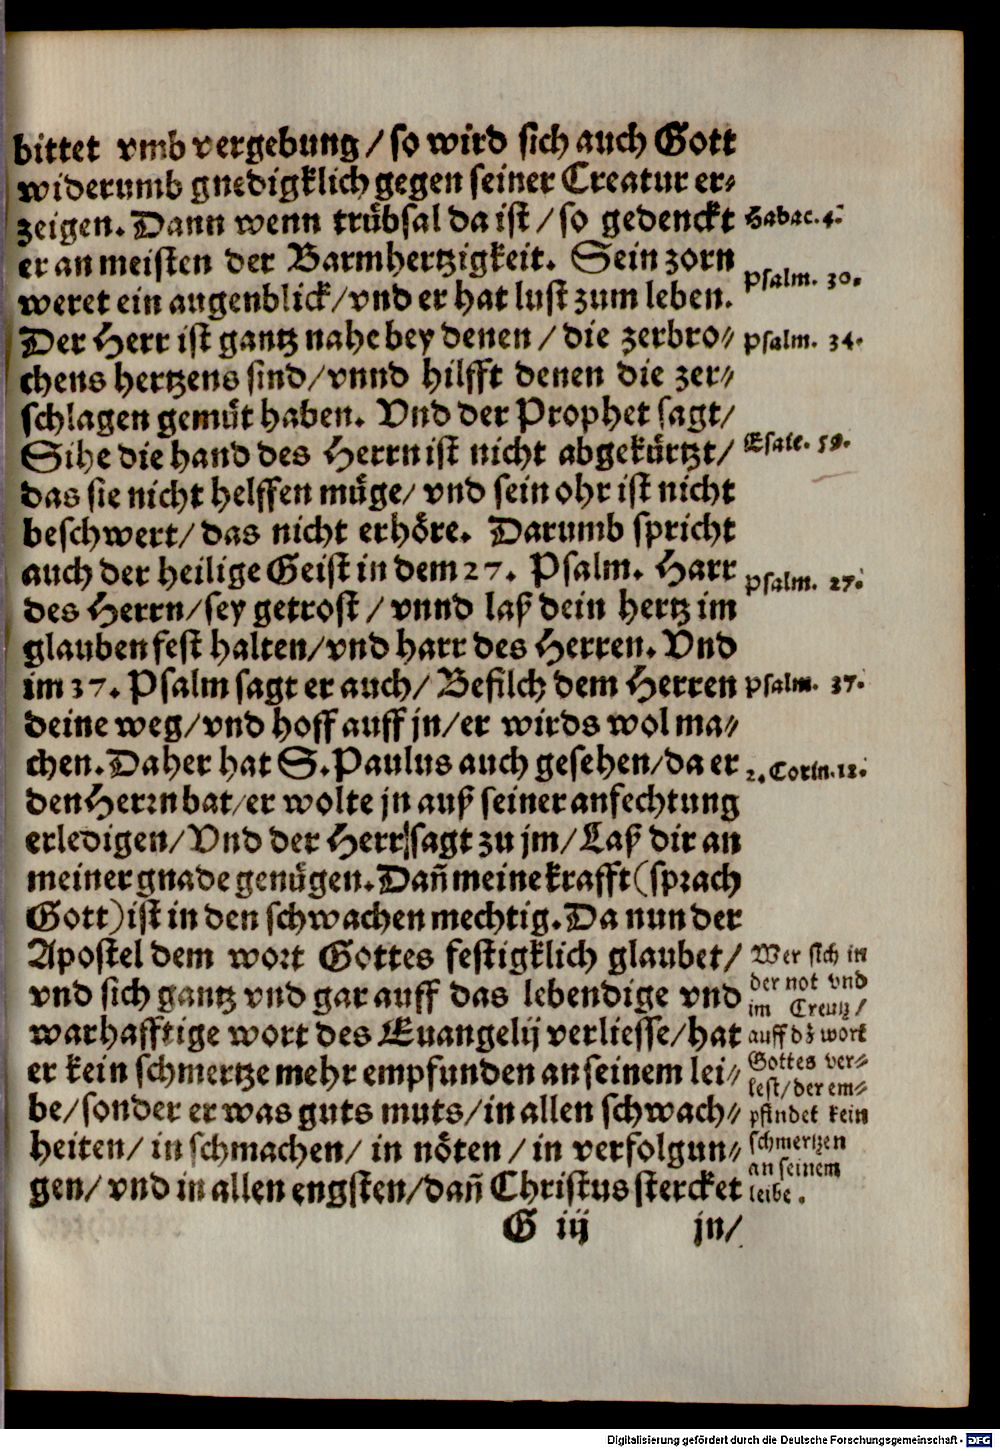 bittet vmb vergebung / so wird sich auch Gott
widerumb gnedigklich gegen seiner Creatur er⸗
zeigen. Dann wenn trübsal da ist / so gedenckt
er an meisten der Barmhertzigkeit. Sein zorn
weret ein augenblick / vnd er hat lust zum leben.
Der Herr ist gantz nahe bey denen / die zerbro⸗
chens hertzens sind / vnnd hilfft denen die zer⸗
schlagen gemüt haben. Vnd der Prophet sagt /
Sihe die hand des Herrn ist nicht abgekürtzt /
das sie nicht helffen müge / vnd sein ohr ist nicht
beschwert / das nicht erhöre. Darumb spricht
auch der heilige Geist in dem 27. Psalm. Harr
des Herrn / sey getrost / vnnd laß dein hertz im
glauben fest halten / vnd harr des Herren. Vnd
im 37. Psalm sagt er auch / Befilch dem Herren
deine weg / vnd hoff auff jn / er wirds wol ma⸗
chen. Daher hat S. Paulus auch gesehen / da er
den Herrn bat / er wolte jn auß seiner anfechtung
erledigen / Vnd der Herr sagt zu jm / Laß dir an
meiner gnade genügen. Dañ meine krafft (sprach
Gott) ist in den schwachen mechtig. Da nun der
Apostel dem wort Gottes festigklich glaubet /
vnd sich gantz vnd gar auff das lebendige vnd
warhafftige wort des Euangelij verliesse / hat
er kein schmertze mehr empfunden an seinem lei⸗
be / sonder er was guts muts / in allen schwach⸗
heiten / in schmachen / in nöten / in verfolgun⸗
gen / vnd in allen engsten / dañ Christus stercket
G iij jn /
Habac. 4.
Psalm. 30.
Psalm. 34.
Esaie. 59.
Psalm. 27.
Psalm. 37.
2. Corin. 12.
Wer sich in
der not vnd
im Creutz /
auff dz wort
Gottes ver⸗
lest / der em⸗
pfindet kein
schmertzen
an seinem
leibe.
Digitalisierung gefördert durch die Deutsche Forschungsgemeinschaft - DFG